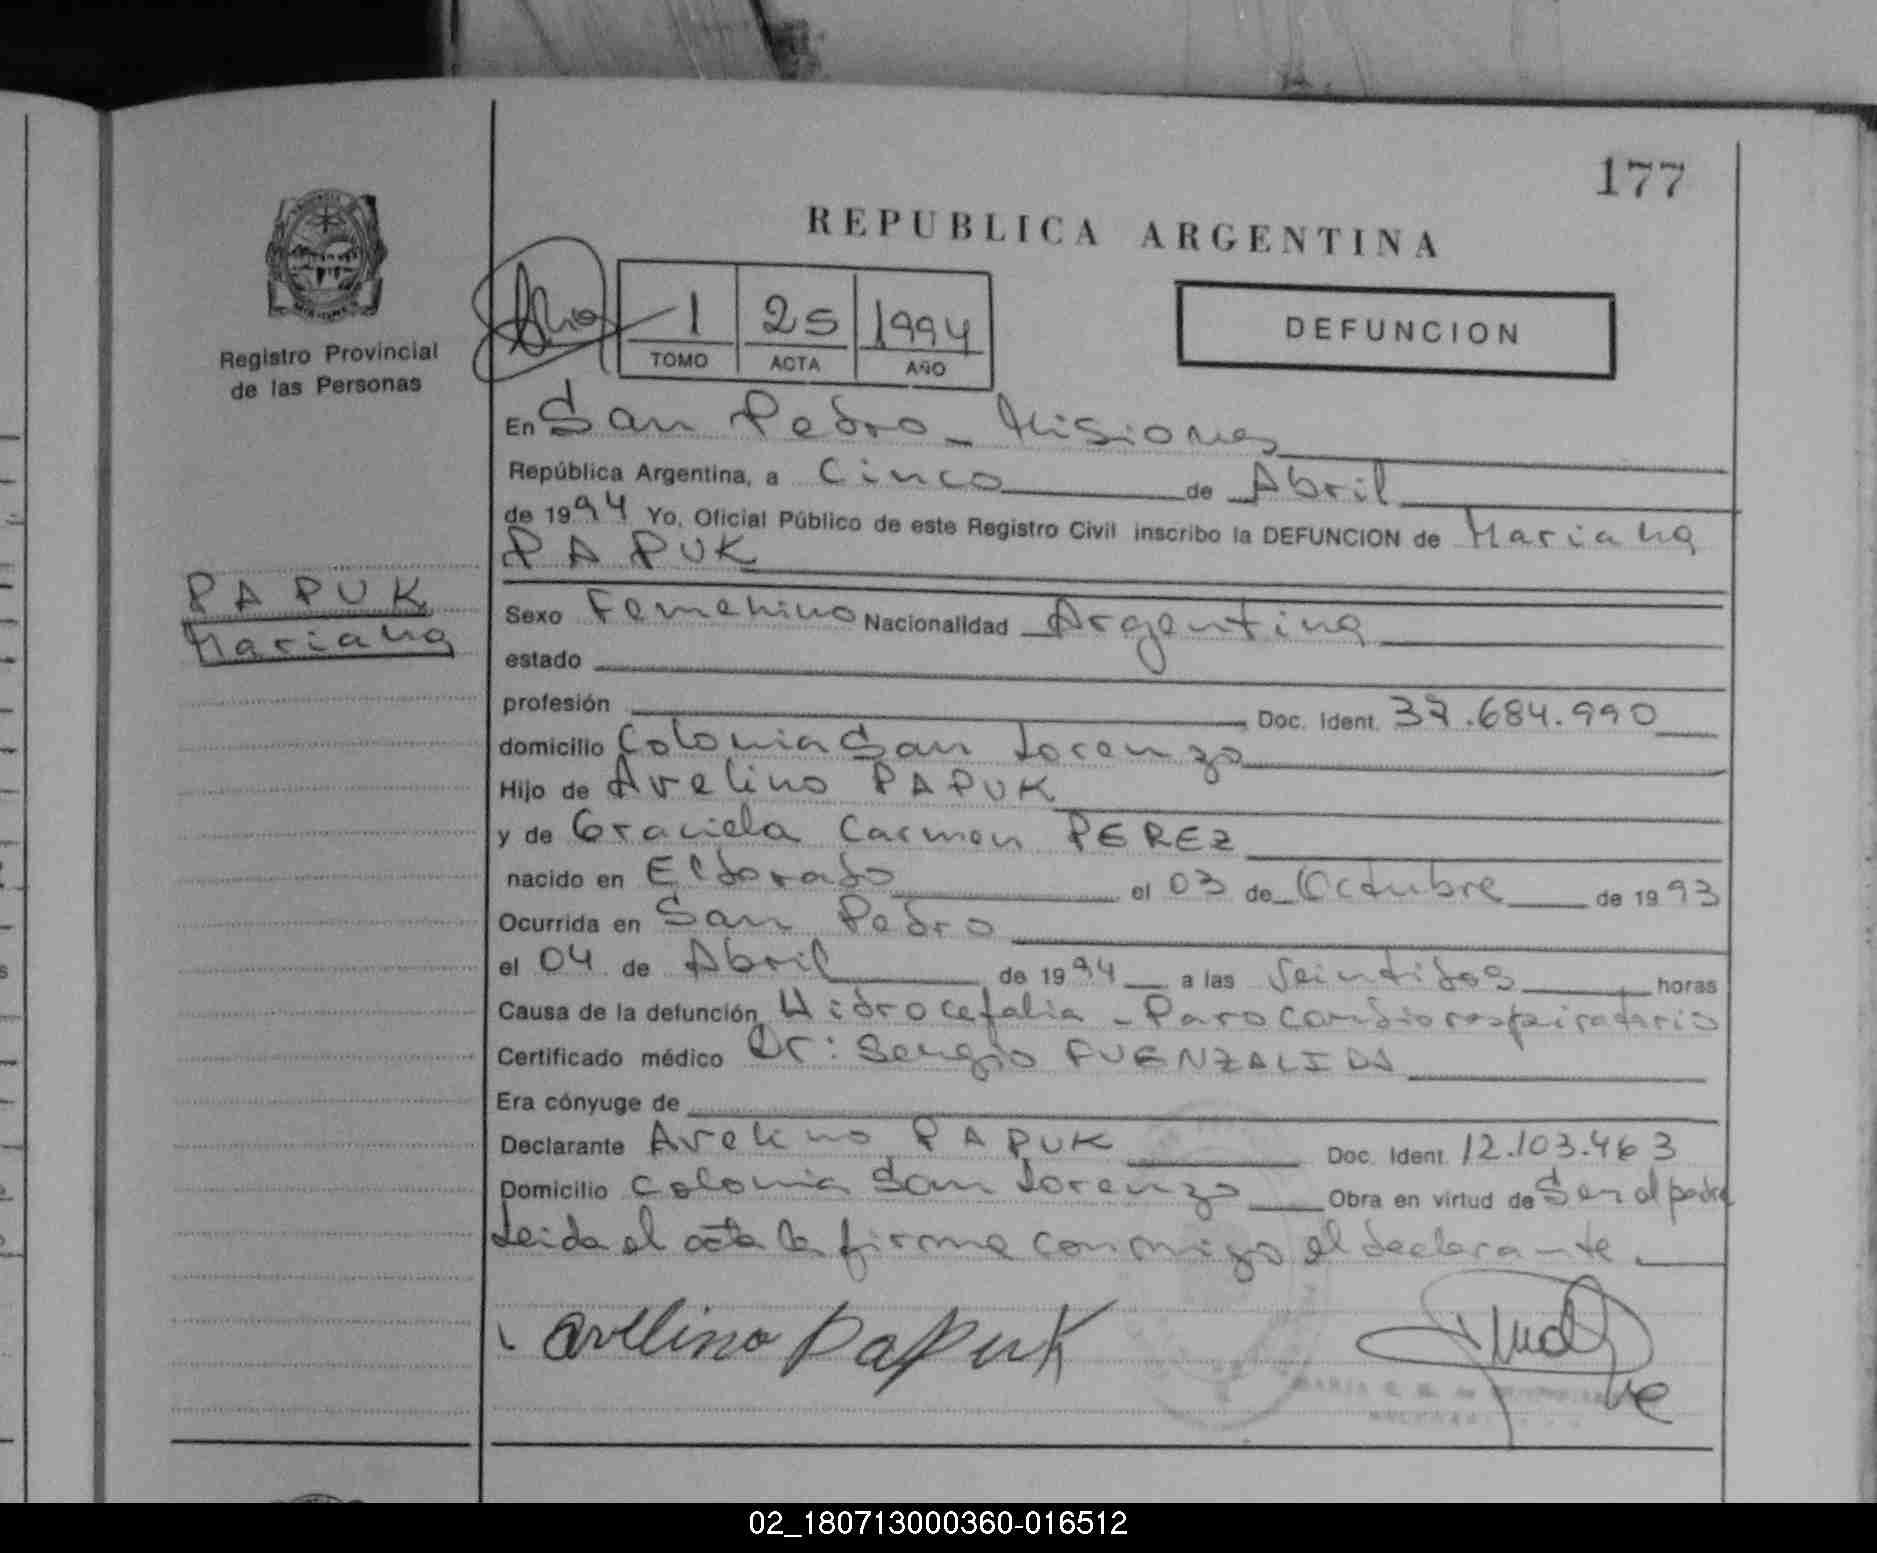 177
REPUBLICA ARGENTINA
Registro Provincial
de las Personas
1 25 1994
TOMO ACTA AÑO
DEFUNCION
En San Pedro - Misiones
República Argentina, a Cinco de Abril
de 1994 Yo, Oficial Público de este Registro Civil inscribo la DEFUNCION de Mariana
PAPUK
PAPUK
Mariana
Sexo Femenino Nacionalidad Argentina
estado
profesión Doc. Ident. 37.684.990
domicilio Colonia San Lorenzo
Hijo de Avelino PAPUK
y de Graciela Carmen PEREZ
nacido en Eldorado el 03 de Octubre de 1993
Ocurrida en San Pedro
el 04 de Abril de 1994 a las Veintidos horas
Causa de la defunción Hidrocefalia - Paro cardiorespiratorio
Certificado médico Dr: Sergio FUENZALIDA
Era cónyuge de
Declarante Avelino PAPUK Doc. Ident. 12.103.463
Domicilio Colonia San Lorenzo Obra en virtud de Ser el padre
Leida el acta la firma conmigo el declarante
avelino Papuk
02_180713000360-016512